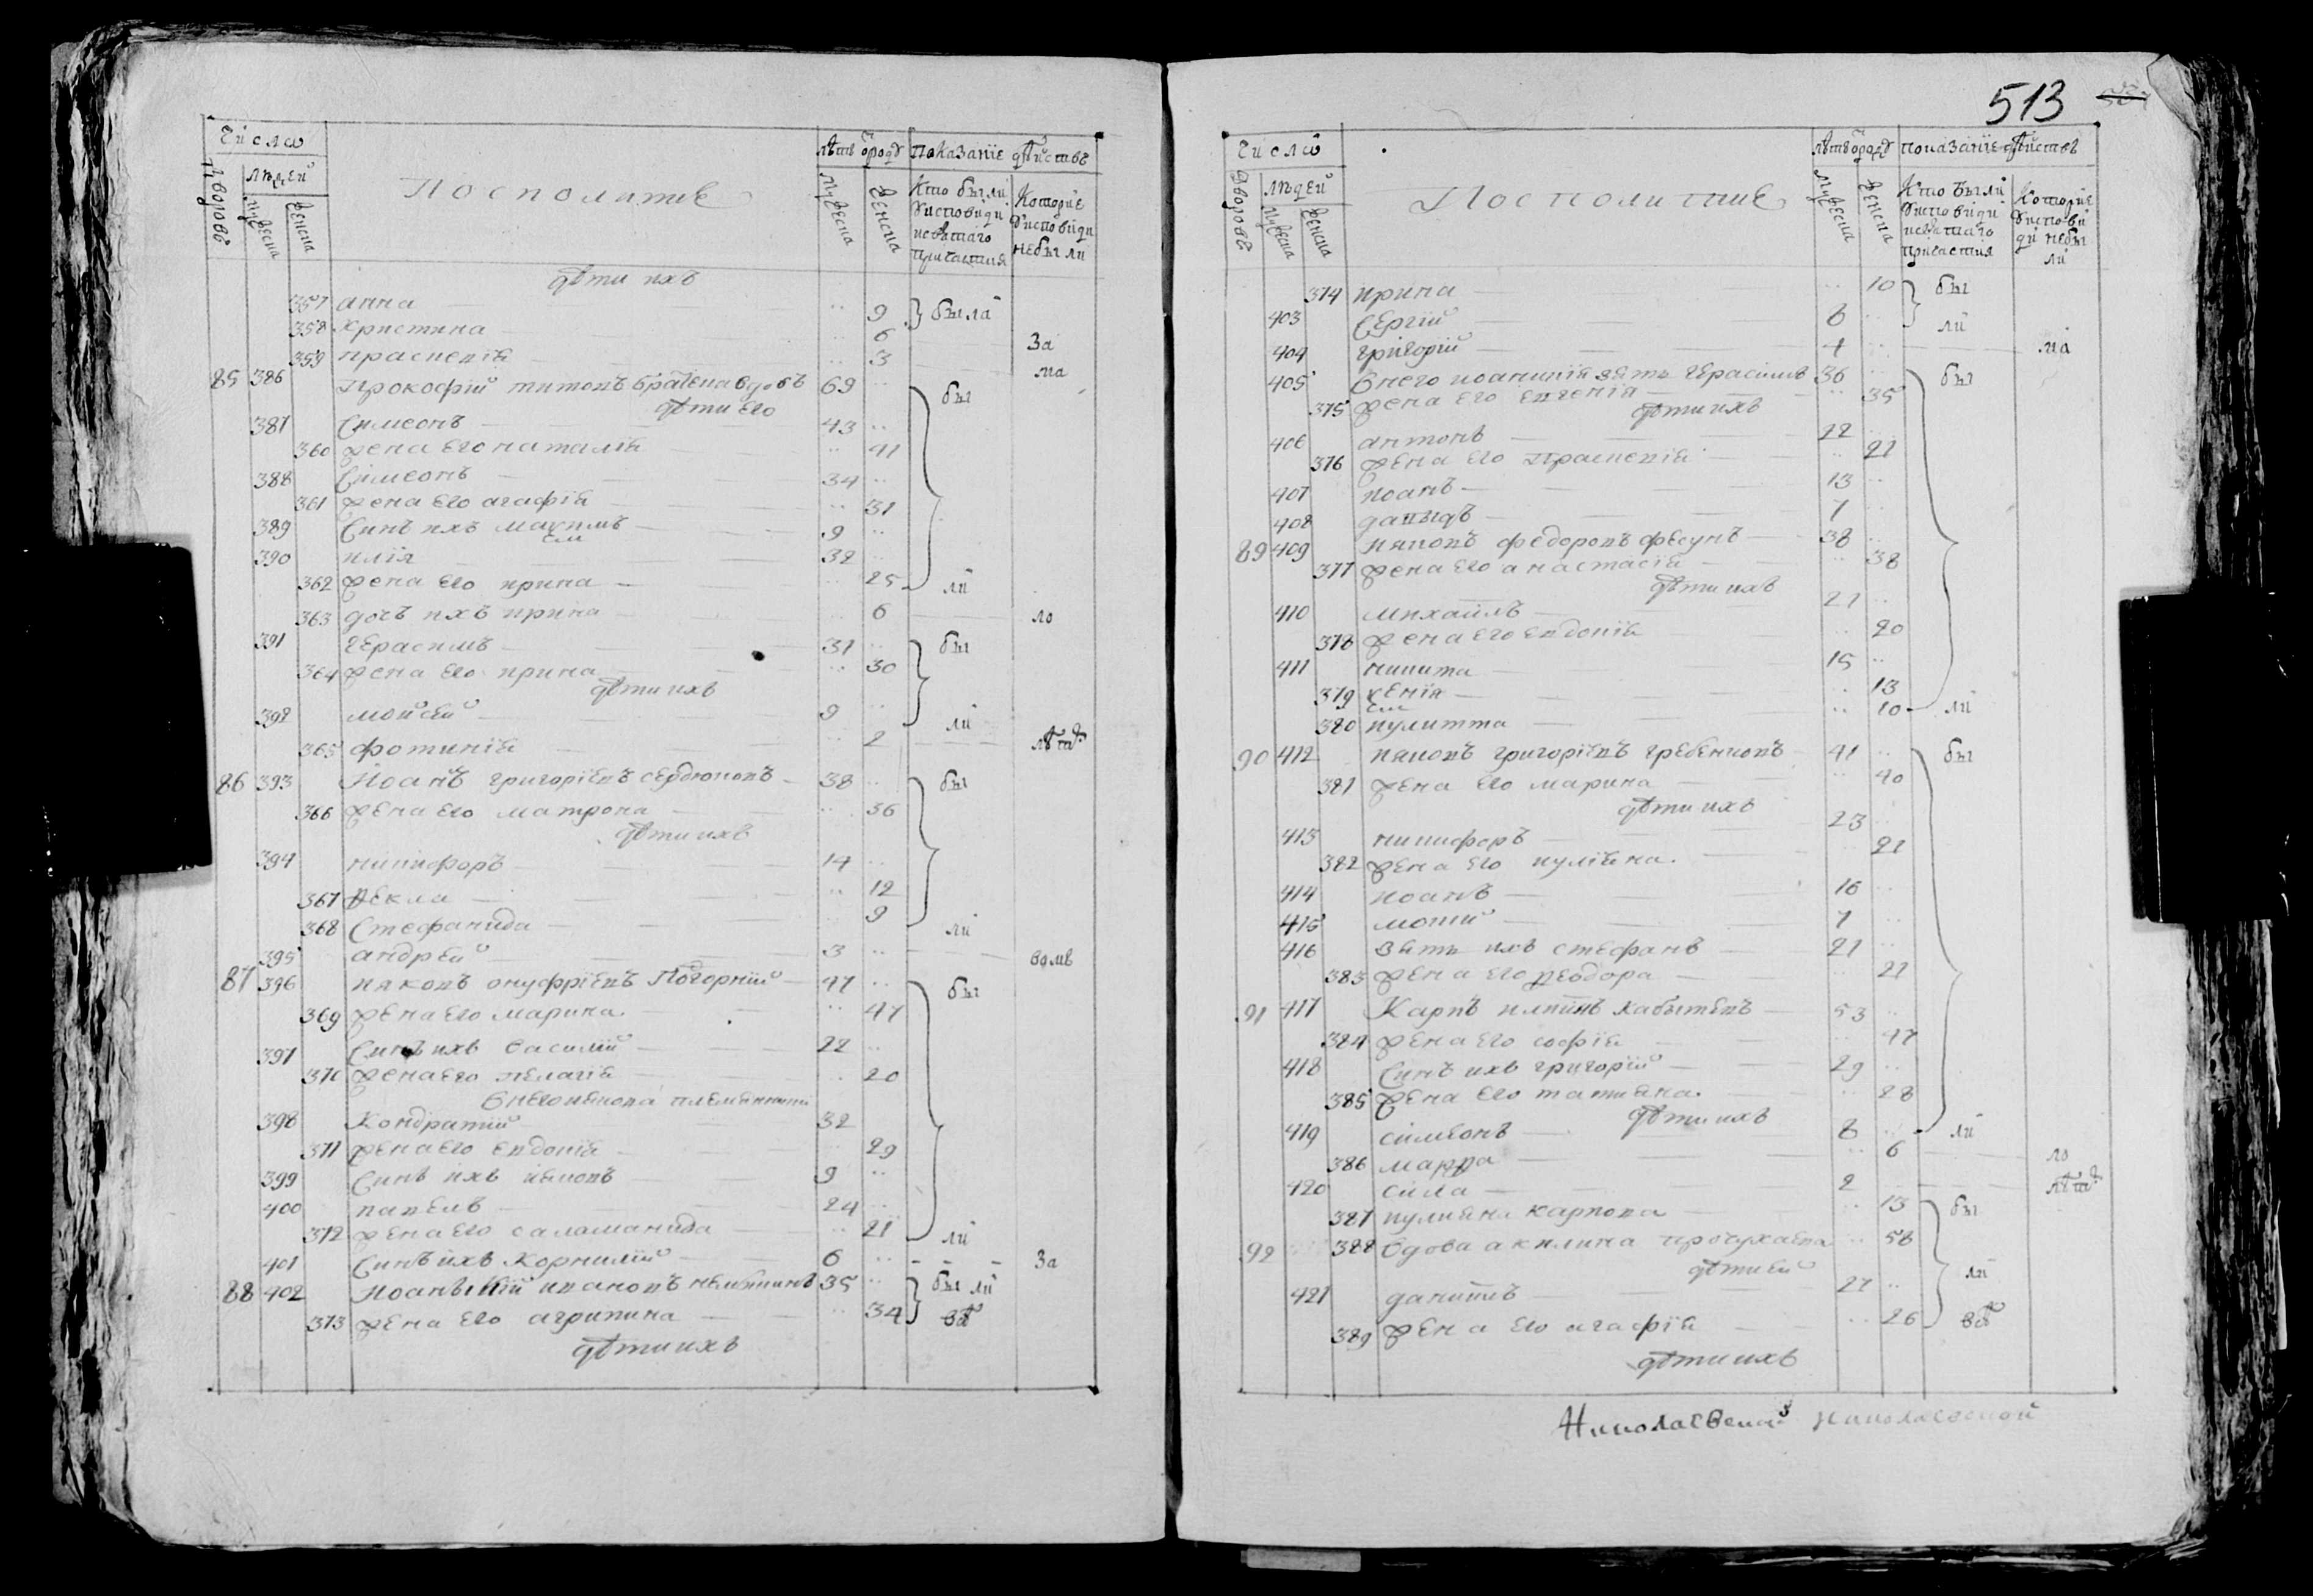 Число
Дворовъ
людей
мужеска
женска
Посполитие
лѣтъ ѿ роду
мужеска
женска
показаніе дѣйствъ
Кто были у исповѣди и святаго причастія
Которіе у исповѣди не были
дѣти ихъ
357 анна 9 была
358 христина 6 За
359 праскевія 3 ма
85 386 Прокофій титовъ вдовъ 69 бы
дѣти его
387 Симеонъ 43
360 жена его наталія 41
388 Симеонъ 34
361 жена его агафія 31
389 Синъ ихъ маѯимъ 9
390 илія 32
362 жена его ирина 25 ли
363 дочъ ихъ ирина 6 ло
391 герасимъ 31 бы
364 жена его ирина 30
дѣти ихъ
392 мойсей 9 ли
365 фотинія 2 лѣт
86 393 Иоанъ григоріевъ сердюковъ 38 бы
366 жена его матрона 36
дѣти ихъ
394 никифоръ 14
367 Ѳекла 12
368 Стефанида 9 ли
395 андрей 3
87 396 ияковъ онуфріевъ Погорній 47 бы
369 жена его марина 47
397 Синъ ихъ василій 22
370 жена его пелагія 20
племянники
398 Кондратій 32
371 жена его евдокія 29
399 Синъ ихъ 9
400 павелъ 24
372 жена его саламанида 21 ли
401 Синъ ихъ Корнилій 6 За
88 402 ивановъ 35 бы ли
373 жена его агрипина 34
дѣти ихъ
513
Число
Дворовъ
людей
мужеска
женска
Посполитие
лѣтъ ѿ роду
мужеска
женска
показаніе дѣйствъ
Кто были у исповѣди и святаго причастія
Которіе у исповѣди не были
374 ирина 10 бы
403 Сергій 8 ли
404 григорій 4 ма
405 У него зять герасимъ 36 бы
375 жена его евгенія 35
дѣти ихъ
406 антонъ 22
376 жена его праскевія 21
407 иоанъ 13
408 давыдъ 7
89 409 ияковъ федоровъ фесунъ 38
377 жена его анастасія 38
дѣти ихъ
410 михаилъ 21
378 жена его евдокія 20
411 никита 15
379 ѯенія 13
380 иулитта 10 ли
90 412 ияковъ григоріевъ гребенковъ 41 бы
381 жена его марина 40
дѣти ихъ
413 никифоръ 23
382 жена его иуліяна 21
414 иоанъ 16
415 мокій 7
416 Зять ихъ стефанъ 21
383 жена его Ѳеодора 21
91 417 Карпъ 53
384 жена его софія 47
418 Синъ ихъ григорій 29
385 жена его татияна 28
дѣти ихъ
419 симеонъ 8 ли
386 марѳа 6 ло
420 сила 2 лѣт
387 иулияна карпова 13 бы
92 388 вдова акилина 58
дѣти ей ли
421 даниилъ 27
389 жена его агафія 26
дѣти ихъ
Николаевской николаевской